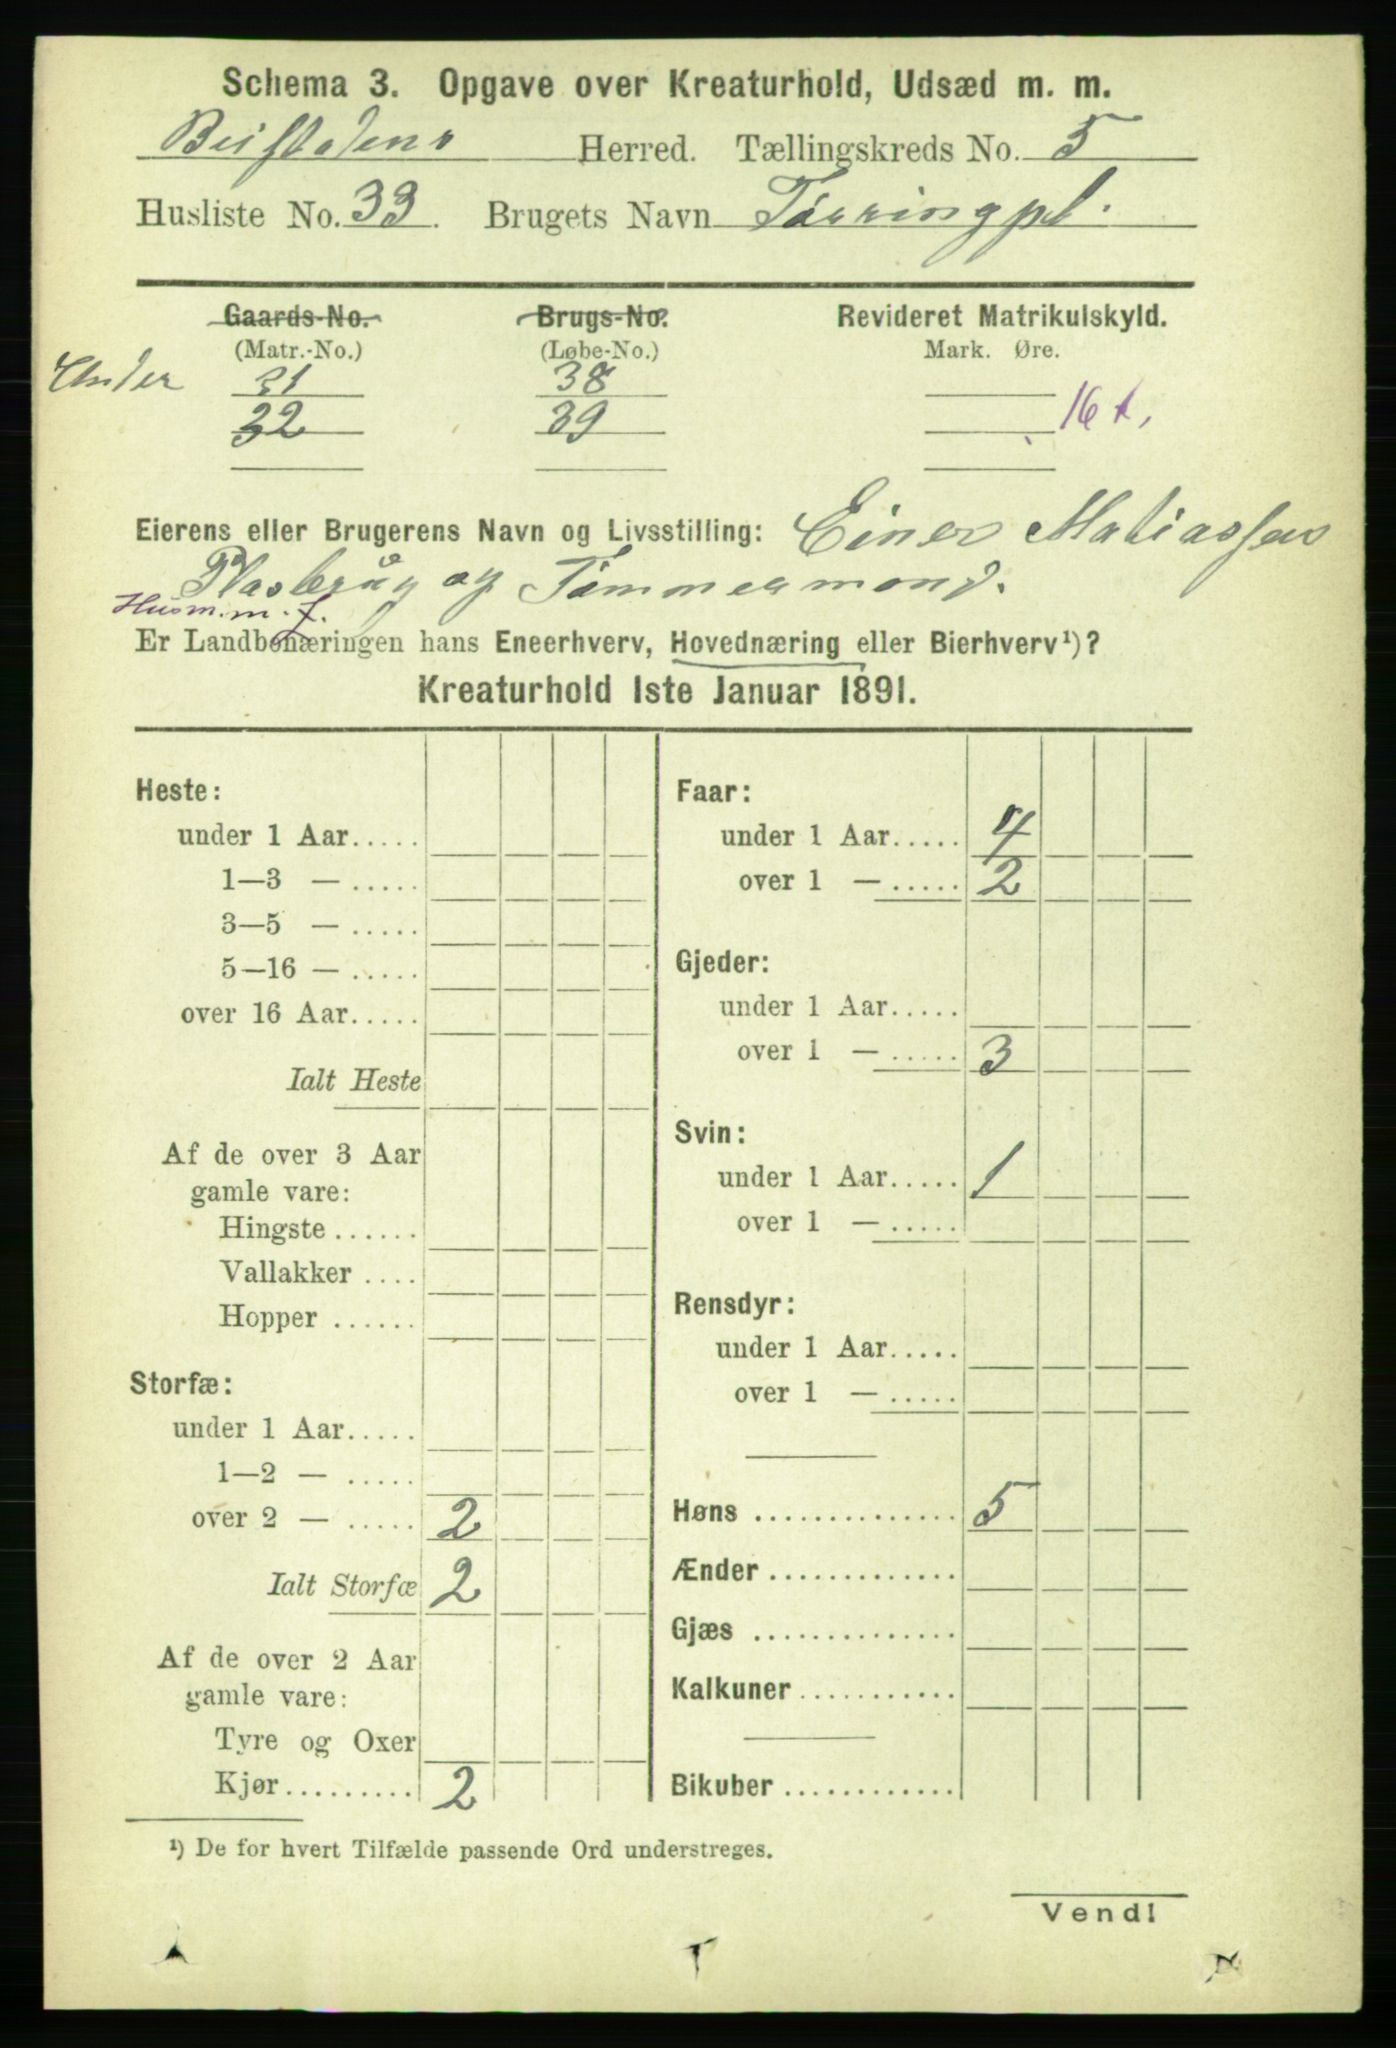 Schema 3. Opgave over Kreaturhold, Udsæd m. m.
Beistadens Herred. Tællingskreds No. 5
Husliste No. 33. Brugets Navn Tørringpl.
Gaards-No. Brugs-No. Revideret Matrikulskyld.
(Matr.-No.) (Løbe-No.) Mark. Øre.
Under 31 38
32 39 16 t.
Eierens eller Brugerens Navn og Livsstilling: Einer Matiassen
Plasbrug og Tømmermand.
Husm. m. J.
Er Landbonæringen hans Eneerhverv, Hovednæring eller Bierhverv¹)?
Kreaturhold 1ste Januar 1891.
Heste:
under 1 Aar.....
1—3 — .....
3—5 — .....
5—16 — .....
over 16 Aar.....
Ialt Heste
Af de over 3 Aar
gamle vare:
Hingste ......
Vallakker ....
Hopper ......
Storfæ:
under 1 Aar.....
1—2 — .....
over 2 — ..... 2
Ialt Storfæ 2
Af de over 2 Aar
gamle vare:
Tyre og Oxer
Kjør......... 2
Faar:
under 1 Aar..... 4
over 1 — ..... 2
Gjeder:
under 1 Aar.....
over 1 — ..... 3
Svin:
under 1 Aar..... 1
over 1 — .....
Rensdyr:
under 1 Aar.....
over 1 — .....
Høns .............. 5
Ænder .............
Gjæs ..............
Kalkuner............
Bikuber .............
¹) De for hvert Tilfælde passende Ord understreges.
Vend!